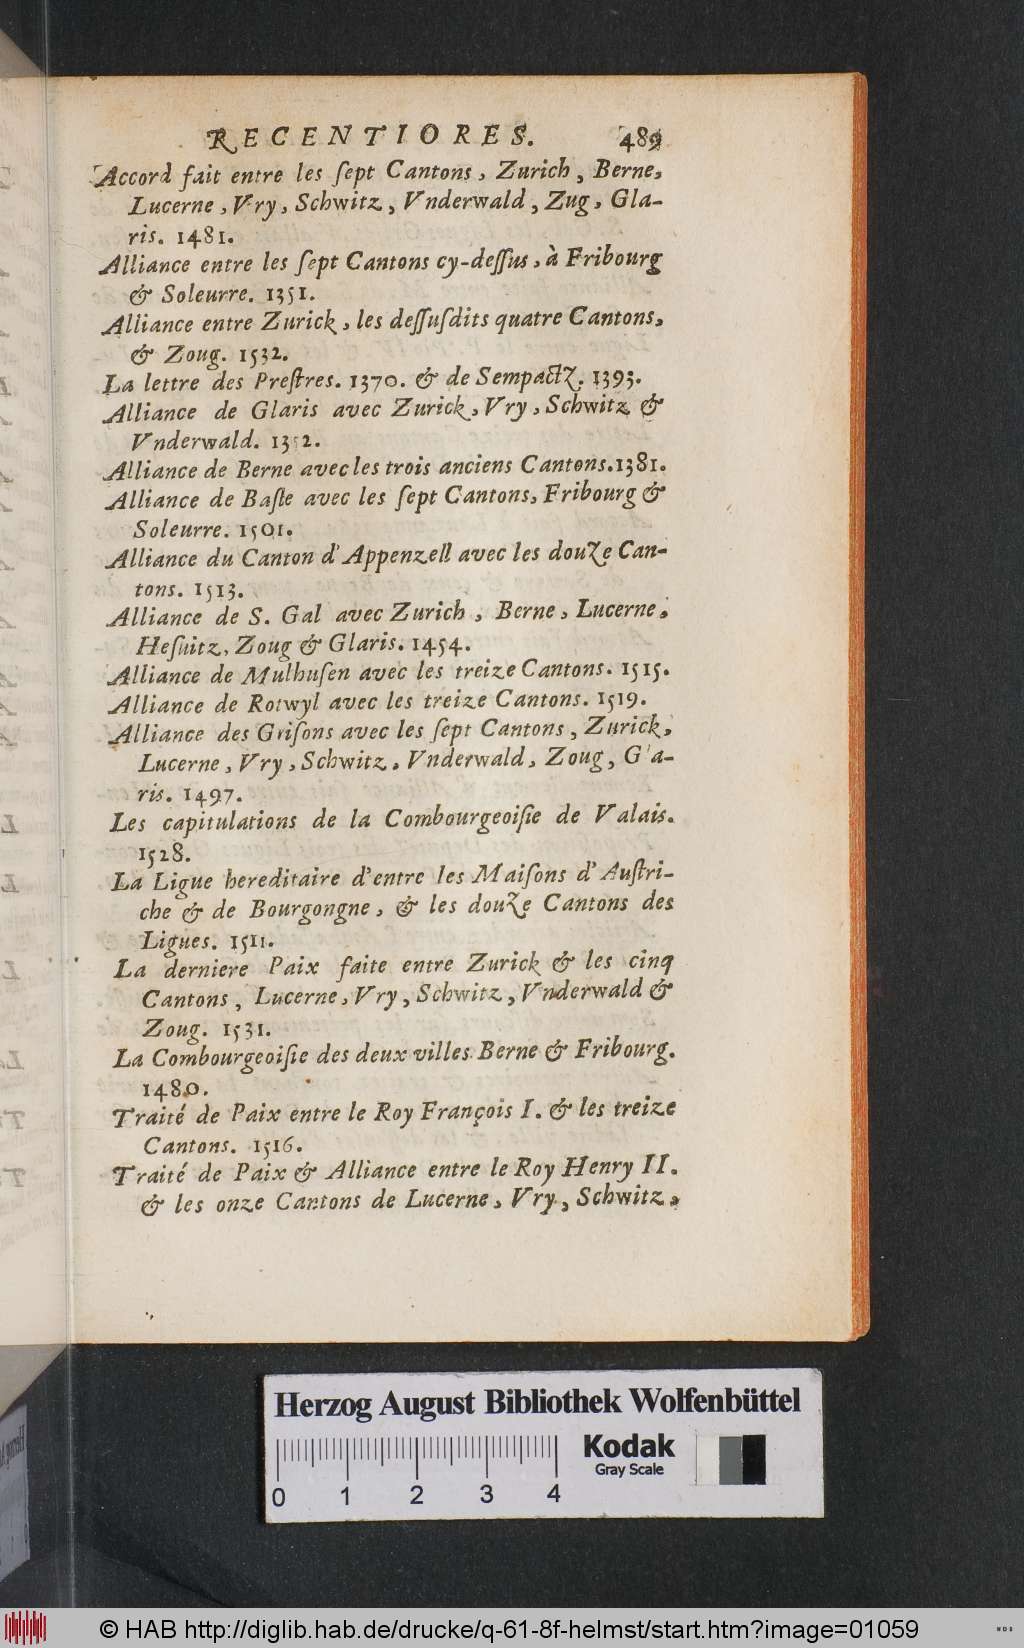 RECENTIORES. 489
Accord fait entre les ſept Cantons, Zurich, Berne,
Lucerne, Vry, Schwitz, Vnderwald, Zug, Gla-
ris. 1481.
Alliance entre les ſept Cantons cy-deſſus, à Fribourg
& Soleurre. 1351.
Alliance entre Zurick, les deſſuſdits quatre Cantons,
& Zoug. 1532.
La lettre des Preſtres. 1370. & de Sempactz. 1393.
Alliance de Glaris avec Zurick, Vry, Schwitz &
Vnderwald. 1352.
Alliance de Berne avec les trois anciens Cantons. 1381.
Alliance de Baſle avec les ſept Cantons, Fribourg &
Soleurre. 1501.
Alliance du Canton d'Appenzell avec les douze Can-
tons. 1513.
Alliance de S. Gal avec Zurich, Berne, Lucerne,
Heſuitz, Zoug & Glaris. 1454.
Alliance de Mulhuſen avec les treize Cantons. 1515.
Alliance de Rotwyl avec les treize Cantons. 1519.
Alliance des Griſons avec les ſept Cantons, Zurick,
Lucerne, Vry, Schwitz, Vnderwald, Zoug, Gla-
ris. 1497.
Les capitulations de la Combourgeoiſie de Valais.
1528.
La Ligue hereditaire d'entre les Maiſons d'Auſtri-
che & de Bourgongne, & les douze Cantons des
Ligues. 1511.
La derniere Paix faite entre Zurick & les cinq
Cantons, Lucerne, Vry, Schwitz, Vnderwald &
Zoug. 1531.
La Combourgeoiſie des deux villes Berne & Fribourg.
1480.
Traité de Paix entre le Roy François I. & les treize
Cantons. 1516.
Traité de Paix & Alliance entre le Roy Henry II.
& les onze Cantons de Lucerne, Vry, Schwitz,
Herzog August Bibliothek Wolfenbüttel
Kodak
Gray Scale
0 1 2 3 4
© HAB http://diglib.hab.de/drucke/q-61-8f-helmst/start.htm?image=01059